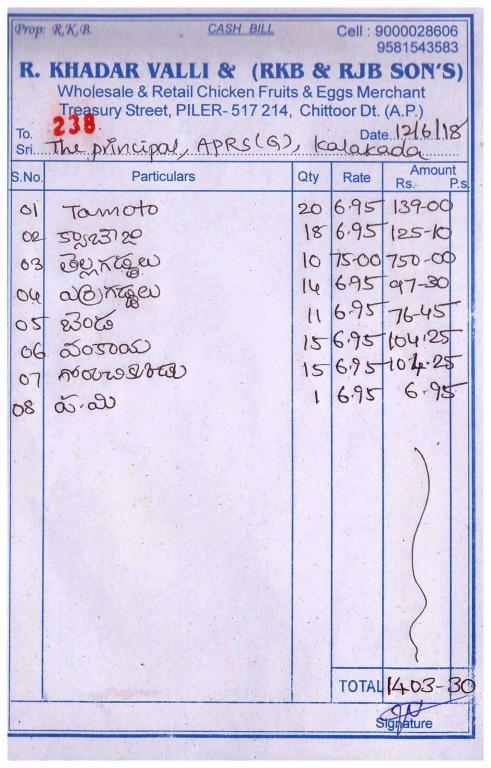 Prop: R,K,B. CASH BILL Cell : 9000028606
9581543583
R. KHADAR VALLI & (RKB & RJB SON'S)
Wholesale & Retail Chicken Fruits & Eggs Merchant
Treasury Street, PILER- 517 214, Chittoor Dt. (A.P.)
238
To. Date. 12/6/18
Sri. The principal, APRS(G), Kalakada
S.No. Particulars Qty Rate Amount
Rs. P.s.
01 Tamoto 20 6.95 139-00
02 క్యాబేజి 18 6.95 125-10
03 తెల్లగడ్డలు 10 75-00 750-00
04 ఎర్రగడ్డలు 14 6.95 97-30
05 బెండ 11 6.95 76-45
06 వంకాయ 15 6.95 104.25
07 గోరుచిక్కుడు 15 6.95 104.25
08 ప.మి 1 6.95 6.95
TOTAL 1403-30
Signature